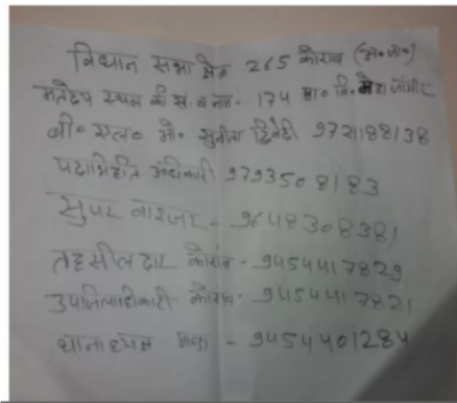 विधान सभा क्षेत्र 265 कोरांव (अ०जा०)
मतदेय स्थल की सं. व नाम - 174 प्रा० वि०
बी० एल० ओ० सुनीता द्विवेदी 9721188138
पदाभिहित अधिकारी 9793508183
सुपर वाइजर - 9648308381
तहसीलदार कोरांव - 9454417829
उपजिलाधिकारी - कोरांव - 9454417821
थानाध्यक्ष - 9454401284